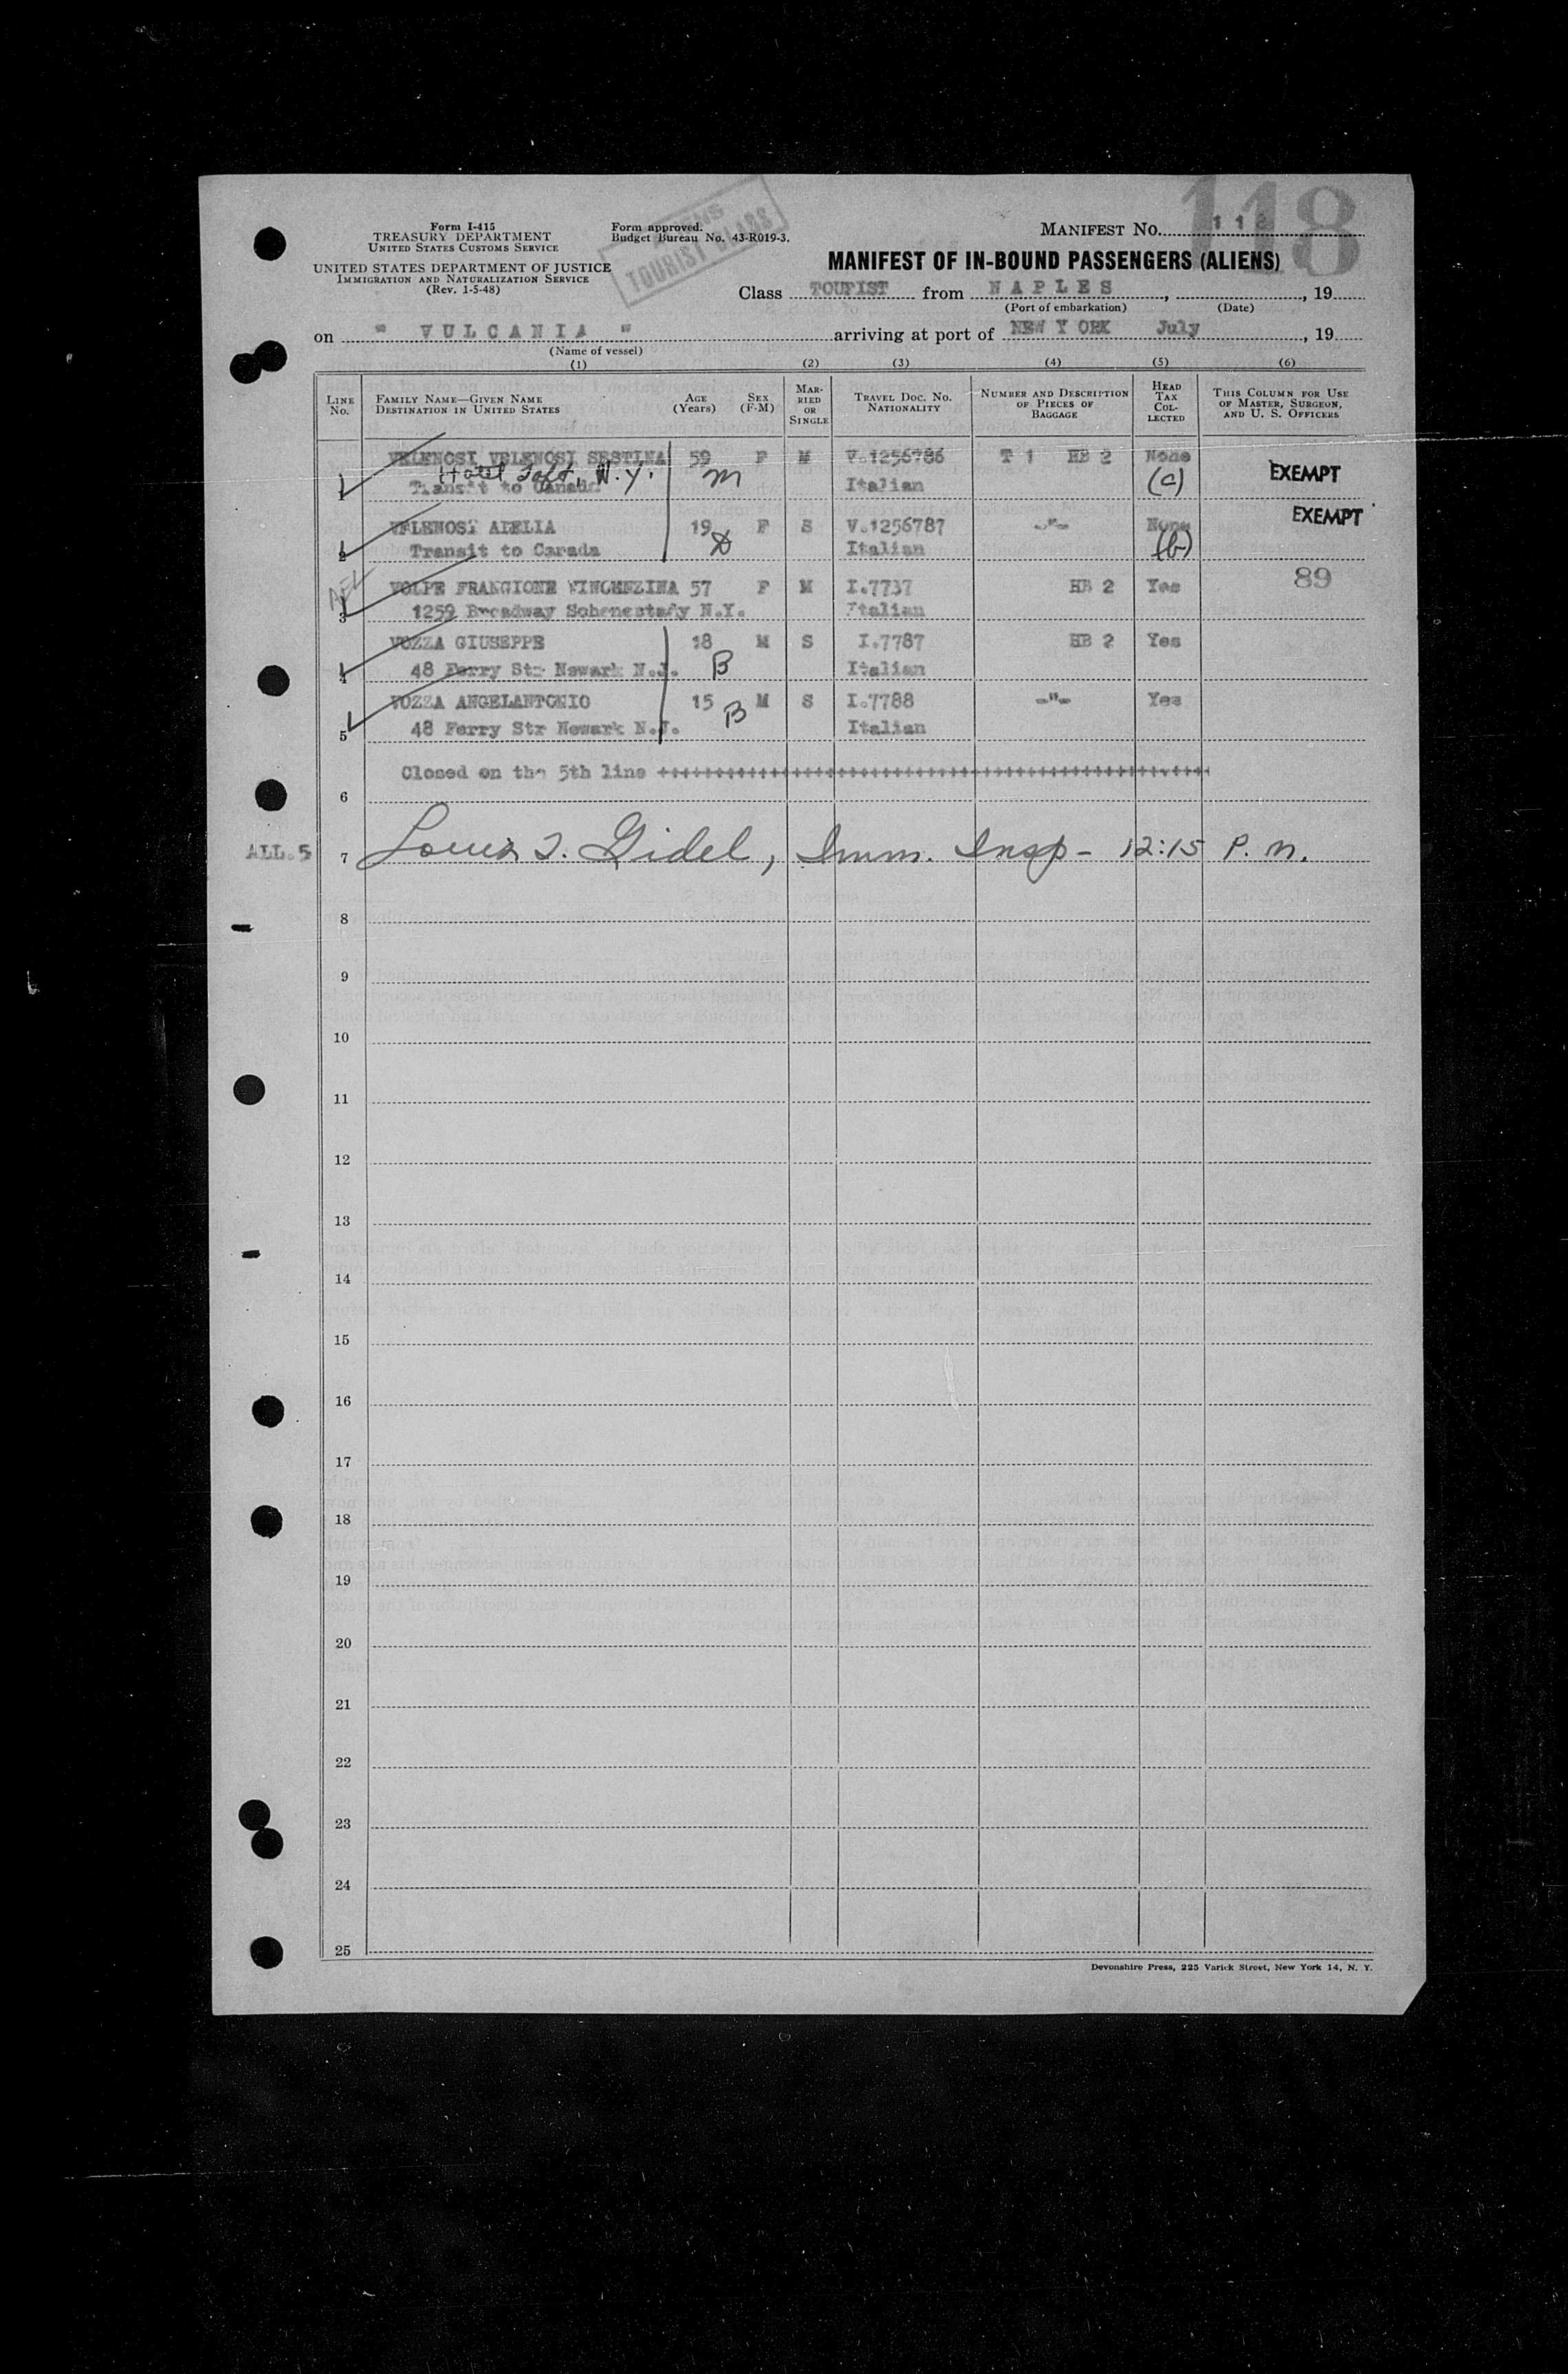 118
Form I-415
TREASURY DEPARTMENT
UNITED STATES CUSTOMS SERVICE
UNITED STATES DEPARTMENT OF JUSTICE
IMMIGRATION AND NATURALIZATION SERVICE
(Rev. 1-5-48)
Form approved.
Budget Bureau No. 43-R019-3.
TOURIST CLASS
MANIFEST No. 118
MANIFEST OF IN-BOUND PASSENGERS (ALIENS)
Class TOURIST from NAPLES, , 19
(Port of embarkation) (Date)
on " VULCANIA " arriving at port of NEW YORK July , 19
(Name of vessel)
(1) (2) (3) (4) (5) (6)
LINE No. FAMILY NAME—GIVEN NAME DESTINATION IN UNITED STATES AGE (Years) SEX (F-M) MARRIED OR SINGLE TRAVEL DOC. NO. NATIONALITY NUMBER AND DESCRIPTION OF PIECES OF BAGGAGE HEAD TAX COLLECTED THIS COLUMN FOR USE OF MASTER, SURGEON, AND U. S. OFFICERS
VELENOSI VELENOSI SESTINA 59 F M V.1256786 T 1 HB 2 None
Hotel Taft, N.Y. m (c) EXEMPT
1 Transit to Canada Italian
VELENOSI ADELIA 19 F S V.1256787 -"- None EXEMPT
2 Transit to Canada Italian (b)
VOLPE FRANGIONE VINCENZINA 57 F M I.7737 HB 2 Yes 89
3 1259 Broadway Schenestady N.Y. Italian
VOZZA GIUSEPPE 18 M S I.7787 HB 2 Yes
4 48 Ferry Str Newark N.J. B Italian
VOZZA ANGELANTONIO 15 B M S I.7788 -"- Yes
5 48 Ferry Str Newark N.J. Italian
Closed on the 5th line ++++++++++++++++++++++++++++++++++++++++++++++++++++++++++
6
ALL. 5 7 Louis J. Gidel, Imm. Insp- 12:15 P. m.
8
9
10
11
12
13
14
15
16
17
18
19
20
21
22
23
24
25
Devonshire Press, 225 Varick Street, New York 14, N. Y.